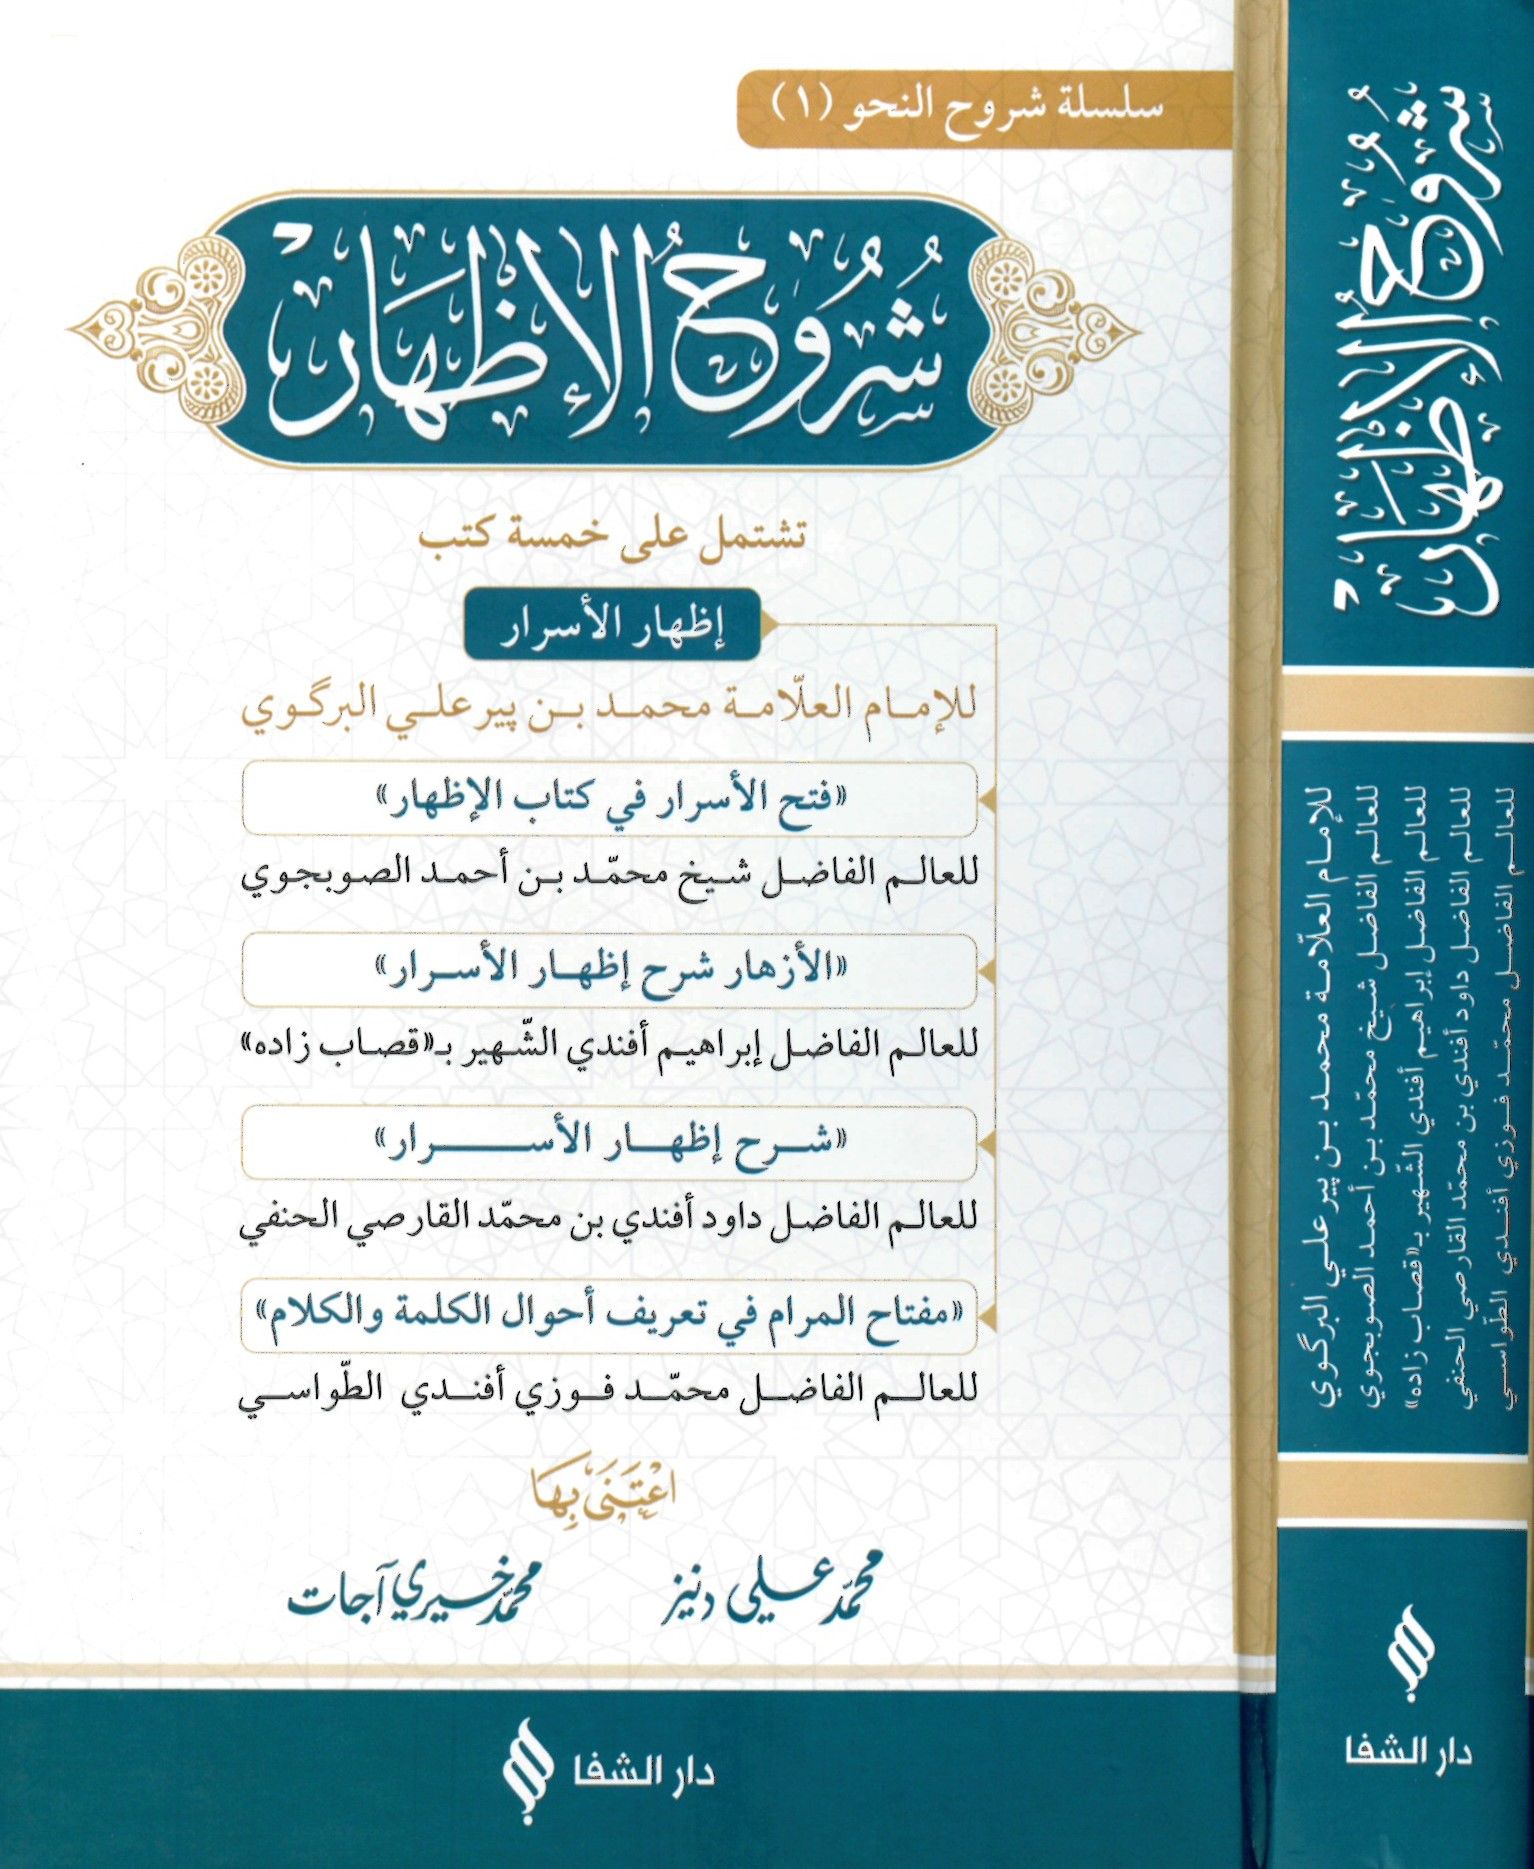 سلسلة شروح النحو (١)
شُرُوحُ الإِظْهَارِ
تشتمل على خمسة كتب
إظهار الأسرار
للإمام العلّامة محمد بن پير علي البرگوي
«فتح الأسرار في كتاب الإظهار»
للعالم الفاضل شيخ محمّد بن أحمد الصوبجوي
«الأزهار شرح إظهار الأسرار»
للعالم الفاضل إبراهيم أفندي الشّهير بـ«قصاب زاده»
«شرح إظهار الأسرار»
للعالم الفاضل داود أفندي بن محمّد القارصي الحنفي
«مفتاح المرام في تعريف أحوال الكلمة والكلام»
للعالم الفاضل محمّد فوزي أفندي الطّواسي
اعْتَنَى بِهَا
محمّد علي دنيز
محمّد خيري آجات
دار الشفا
شُرُوحُ الإِظْهَارِ
للإمام العلّامة محمد بن پير علي البرگوي
للعالم الفاضل شيخ محمّد بن أحمد الصوبجوي
للعالم الفاضل إبراهيم أفندي الشّهير بـ«قصاب زاده»
للعالم الفاضل داود أفندي بن محمّد القارصي الحنفي
للعالم الفاضل محمّد فوزي أفندي الطّواسي
دار الشفا